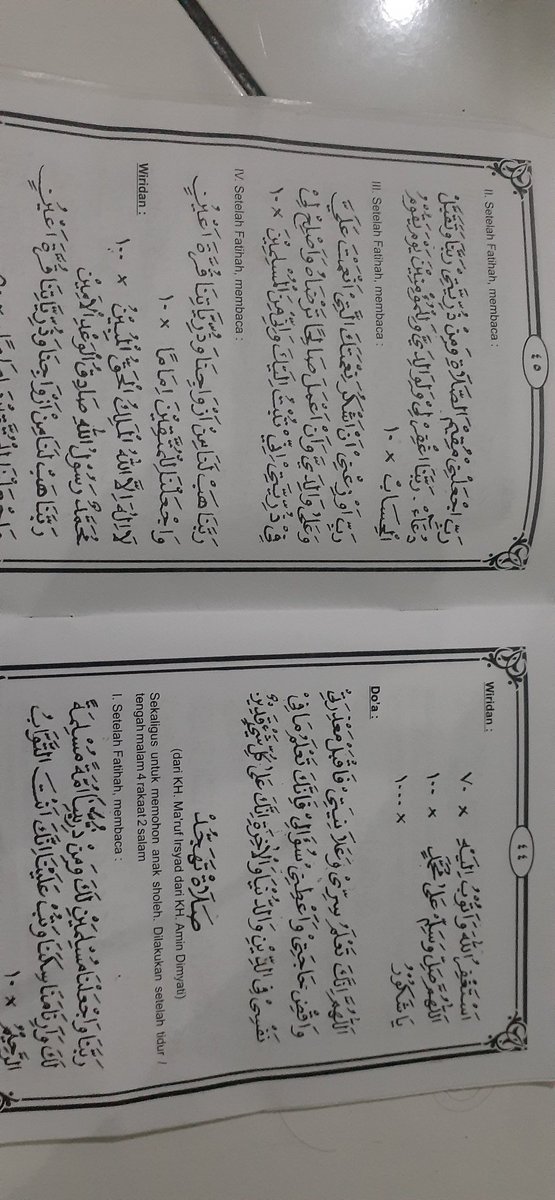 ٤٤
Wiridan :
اَسْتَغْفِرُ اللهَ وَاَتُوْبُ اِلَيْهِ × ٧٠
اَللّٰهُمَّ صَلِّ وَسَلِّمْ عَلٰى مُحَمَّدٍ × ١٠٠
يَا شَكُوْرُ × ١٠٠٠
Do'a :
اَللّٰهُمَّ اِنَّكَ تَعْلَمُ سِرِّىْ وَعَلَانِيَتِىْ فَاقْبَلْ مَعْذِرَتِىْ
وَاقْضِ حَاجَتِىْ وَاَعْطِنِىْ سُؤَالِىْ فَاِنَّكَ تَعْلَمُ مَا فِىْ
نَفْسِىْ فِى الدِّيْنِ وَالدُّنْيَا وَالْاٰخِرَةِ اِنَّكَ عَلٰى كُلِّ شَىْءٍ قَدِيْرٌ
صَلَاةْ تَهَجُّدْ
(dari KH. Ma'ruf Irsyad dari KH. Amin Dimyati)
Sekaligus untuk memohon anak sholeh. Dilakukan setelah tidur /
tengah malam 4 rakaat 2 salam
I. Setelah Fatihah, membaca :
رَبَّنَا وَاجْعَلْنَا مُسْلِمَيْنِ لَكَ وَمِنْ ذُرِّيَّتِنَا اُمَّةً مُسْلِمَةً
لَكَ وَاَرِنَا مَنَاسِكَنَا وَتُبْ عَلَيْنَا اِنَّكَ اَنْتَ التَّوَّابُ
الرَّحِيْمُ × ١٠
٤٥
II. Setelah Fatihah, membaca :
رَبِّ اجْعَلْنِىْ مُقِيْمَ الصَّلَاةِ وَمِنْ ذُرِّيَّتِىْ رَبَّنَا وَتَقَبَّلْ
دُعَاءِ، رَبَّنَا اغْفِرْ لِىْ وَلِوَالِدَىَّ وَلِلْمُؤْمِنِيْنَ يَوْمَ يَقُوْمُ
الْحِسَابُ × ١٠
III. Setelah Fatihah, membaca :
رَبِّ اَوْزِعْنِىْ اَنْ اَشْكُرَ نِعْمَتَكَ الَّتِىْ اَنْعَمْتَ عَلَيَّ
وَعَلٰى وَالِدَيَّ وَاَنْ اَعْمَلَ صَالِحًا تَرْضَاهُ وَاَصْلِحْ لِىْ
فِىْ ذُرِّيَّتِىْ اِنِّىْ تُبْتُ اِلَيْكَ وَاِنِّىْ مِنَ الْمُسْلِمِيْنَ × ١٠
IV. Setelah Fatihah, membaca :
رَبَّنَا هَبْ لَنَا مِنْ اَزْوَاجِنَا وَذُرِّيَّاتِنَا قُرَّةَ اَعْيُنٍ
وَاجْعَلْنَا لِلْمُتَّقِيْنَ اِمَامًا × ١٠
Wiridan :
لَا اِلٰهَ اِلَّا اللهُ الْمَلِكُ الْحَقُّ الْمُبِيْنُ × ١٠٠
مُحَمَّدٌ رَسُوْلُ اللهِ صَادِقُ الْوَعْدِ الْاَمِيْنِ
رَبَّنَا هَبْ لَنَا مِنْ اَزْوَاجِنَا وَذُرِّيَّاتِنَا قُرَّةَ اَعْيُنٍ